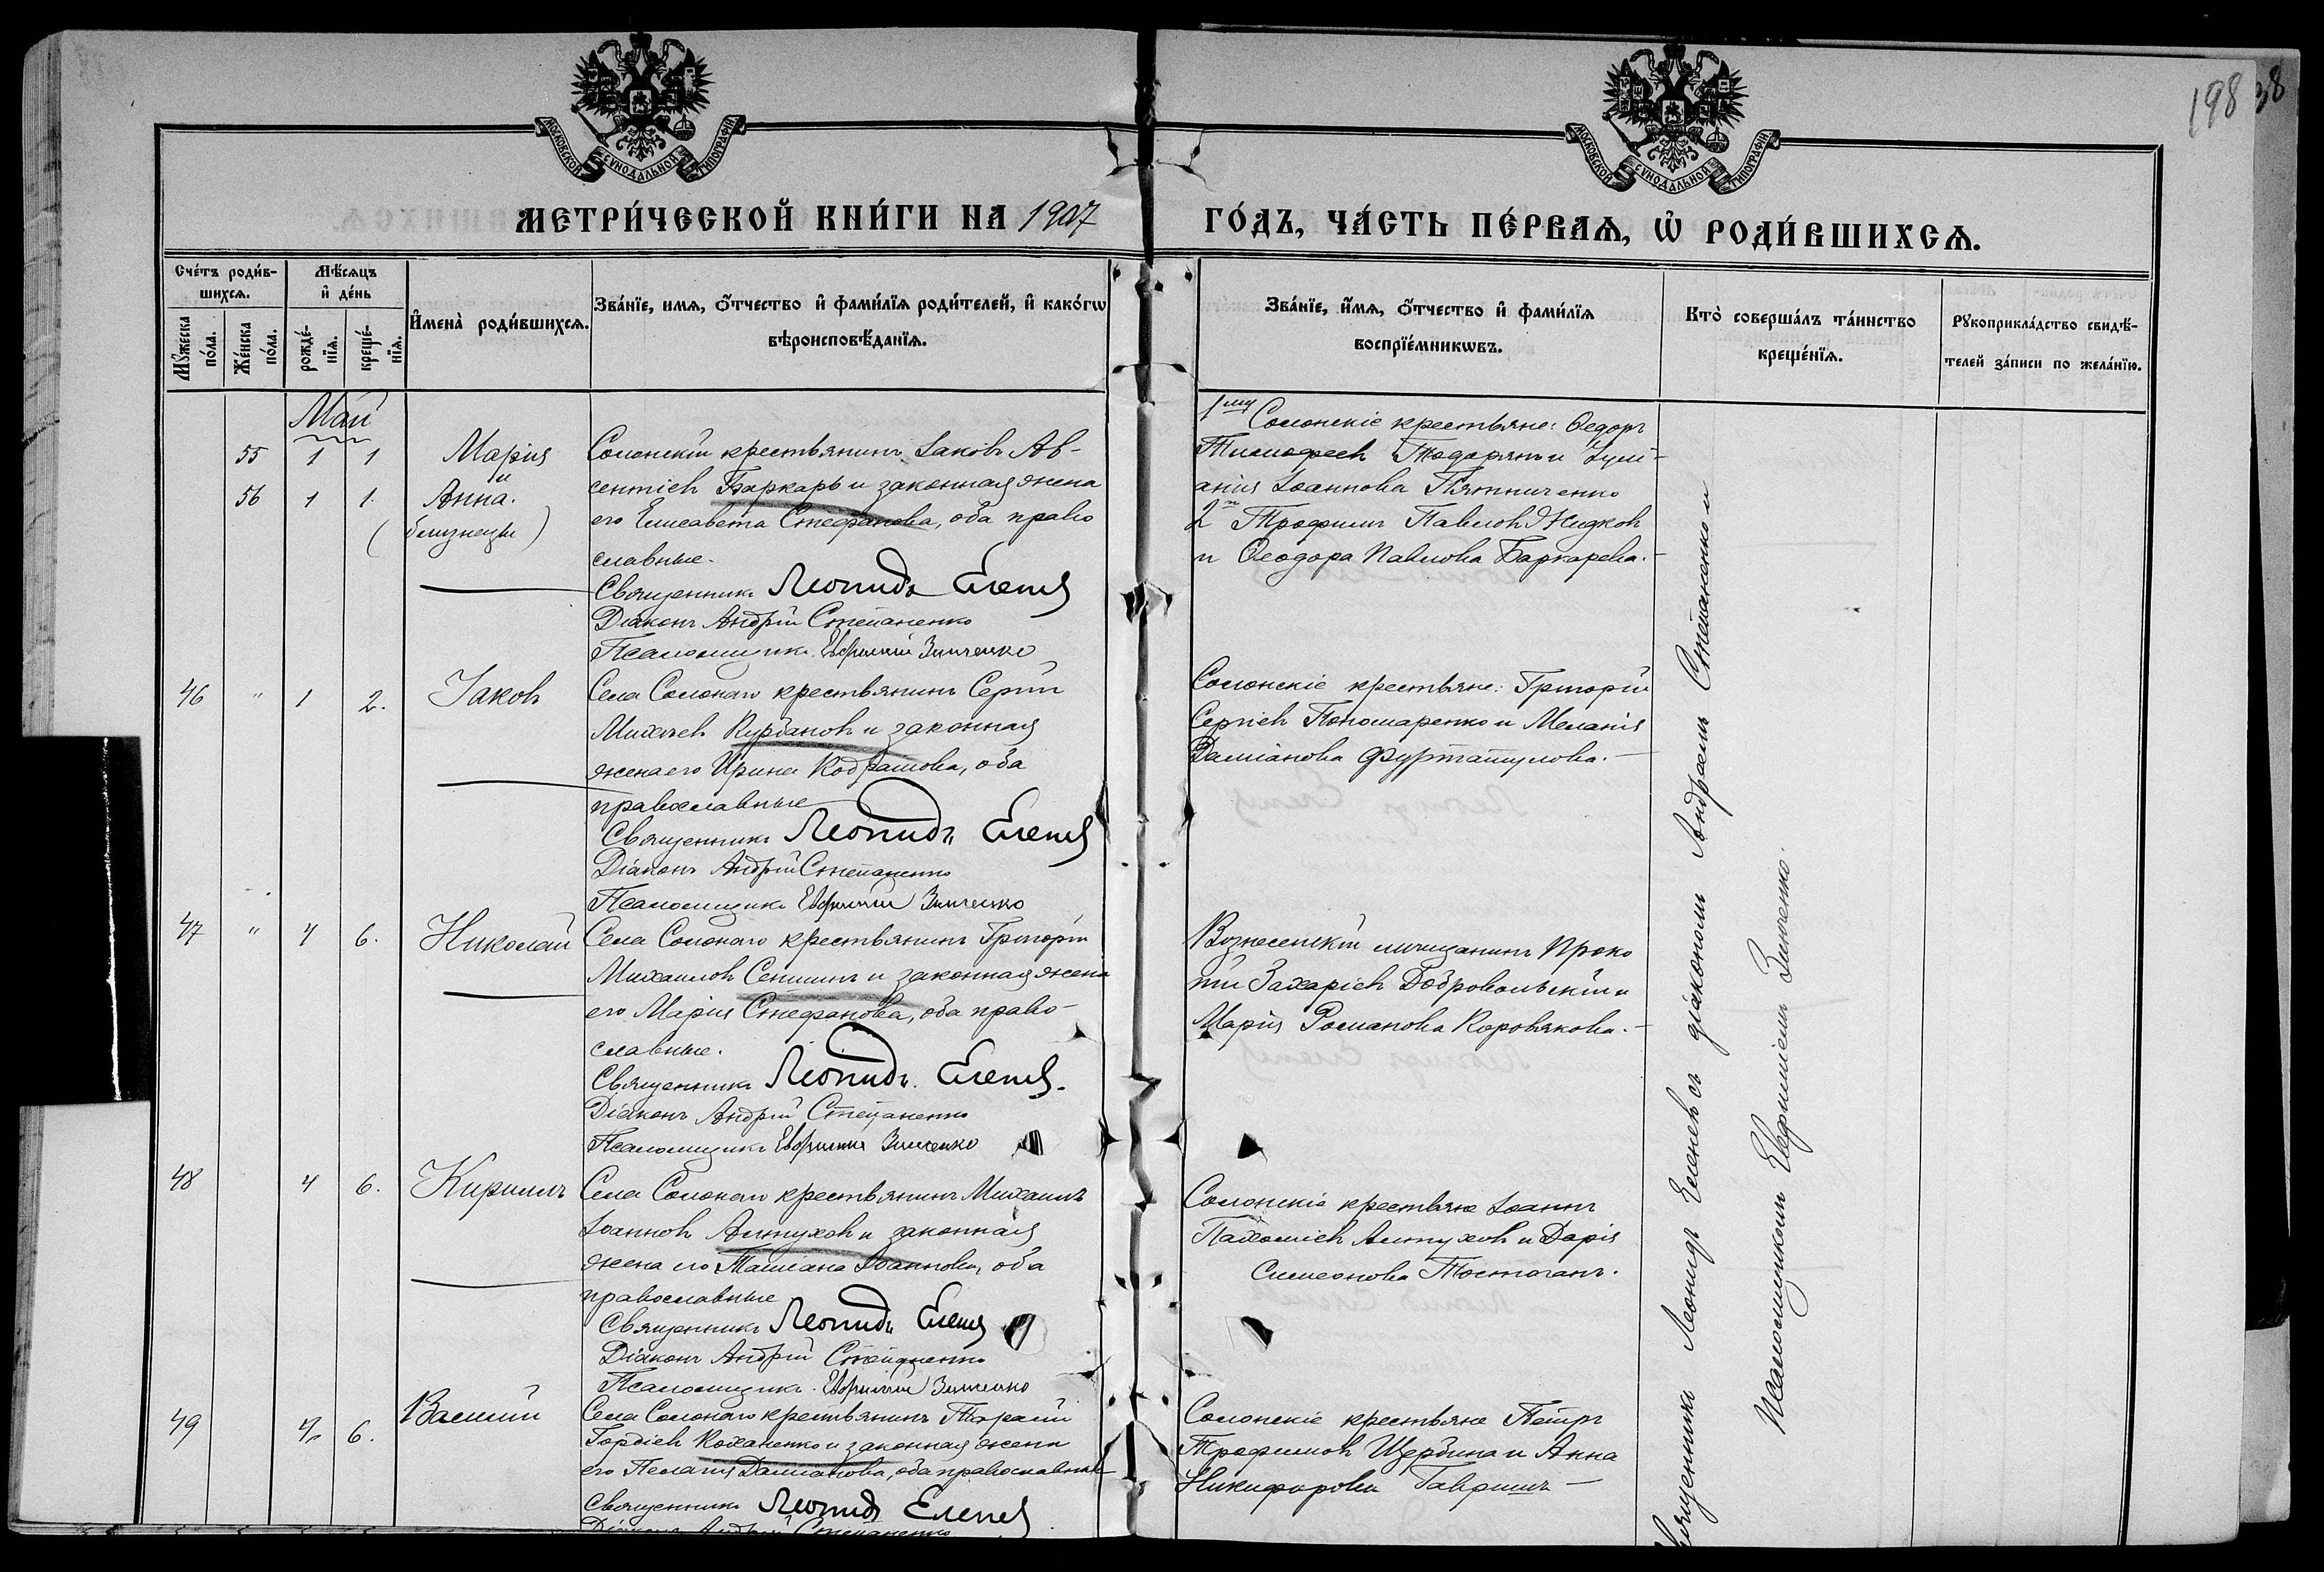 198
38
МОСКОВСКОЙ СѴНОДАЛЬНОЙ ТИПОГРАФІИ
МОСКОВСКОЙ СѴНОДАЛЬНОЙ ТИПОГРАФІИ
МЕТРИ́ЧЕСКОЙ КНИ́ГИ НА 1907
ГО́ДЪ, ЧА́СТЬ ПЕ́РВАѦ, Ѡ҆ РОДИ́ВШИХСѦ.
Сче́тъ роди́в-
шихсѧ.
Мꙋ́жеска по́ла.
Же́нска по́ла.
Мѣ́сѧцъ
и҆ де́нь
рожде́-
нїѧ.
креще́-
нїѧ.
И҆мена̀ роди́вшихсѧ.
Зва́нїе, имѧ, ѻ҆́тчество и҆ фами́лїѧ роди́телей, и҆ како́гѡ
вѣроисповѣ́данїѧ.
Зва́нїе, и҆́мѧ, ѻ҆́тчество и҆ фами́лїѧ
воспрїе́мникѡвъ.
Кто̀ соверша́лъ та́инство
креще́нїѧ.
Рꙋкоприкла́дство свидѣ́-
телей за́писи по жела́нїю.
Май
55 1 1 Марія
и
56 1 1. Анна.
(близнецы)
Солонскій крестьянинъ Іаковъ Ав-
сентіевъ Баркарь и законная жена
его Елисавета Стефанова, оба право
славные.
Священникъ Леонидъ Еленев
Діаконъ Андрій Степаненко
Псаломщикъ Евфимій Зинченко
Солонскіе крестьяне: Ѳедоръ
Тимофеевъ Тодорянъ и
Іоаннова Пятниченко
2й Трофимъ Павловъ Жидковъ
и Ѳеодора Павлова Баркарева.-
46 " 1 2. Іаковъ
Села Солонаго крестьянинъ Сергій
Михеевъ Курбановъ и законная
жена его Ирина Кодратова, оба
православные
Священникъ Леонидъ Еленев
Діаконъ Андрій Степаненко
Псаломщикъ Евфимій Зинченко
Солонскіе крестьяне: Григорій
Сергіевъ Пономаренко и Меланія
Даміанова Фуртатулова.-
47 " 4 6. Николай
Села Солонаго крестьянинъ Григорій
Михаиловъ Сенинъ и законная жена
его Марія Стефанова, оба право-
славные.
Священникъ Леонидъ Еленев.
Діаконъ Андрій Степаненко
Псаломщикъ Евфимій Зинченко
Вознесенскій мѣщанинъ Проко
пій Захаріевъ Добровольскій и
Марія Романова Коровякова.-
48 4 6. Кириллъ
Села Солонаго крестьянинъ Михаилъ
Іоанновъ Алтуховъ и законная
жена его Татіана Іоаннова, оба
православные
Священникъ Леонидъ Еленев
Діаконъ Андрій Степаненко
Псаломщикъ Евфимій Зинченко
Солонскіе крестьяне Іоаннъ
Пахоміевъ Алтуховъ и Дарія
Симеонова Толстоганъ.
49 4 6. Василій
Села Солонаго крестьянинъ Тарасій
Гордіевъ Коханенко и законная жена
его Пелагія Даміанова, оба православные
Священникъ Леонидъ Еленев
Діаконъ Андрій Степаненко
Солонскіе крестьяне Петръ
Трофимовъ Щербина и Анна
Никифорова Гавришъ -
Священникъ Леонидъ Еленевъ съ діакономъ Андреемъ Степаненко и
Псаломщикомъ Евфиміемъ Зинченко.